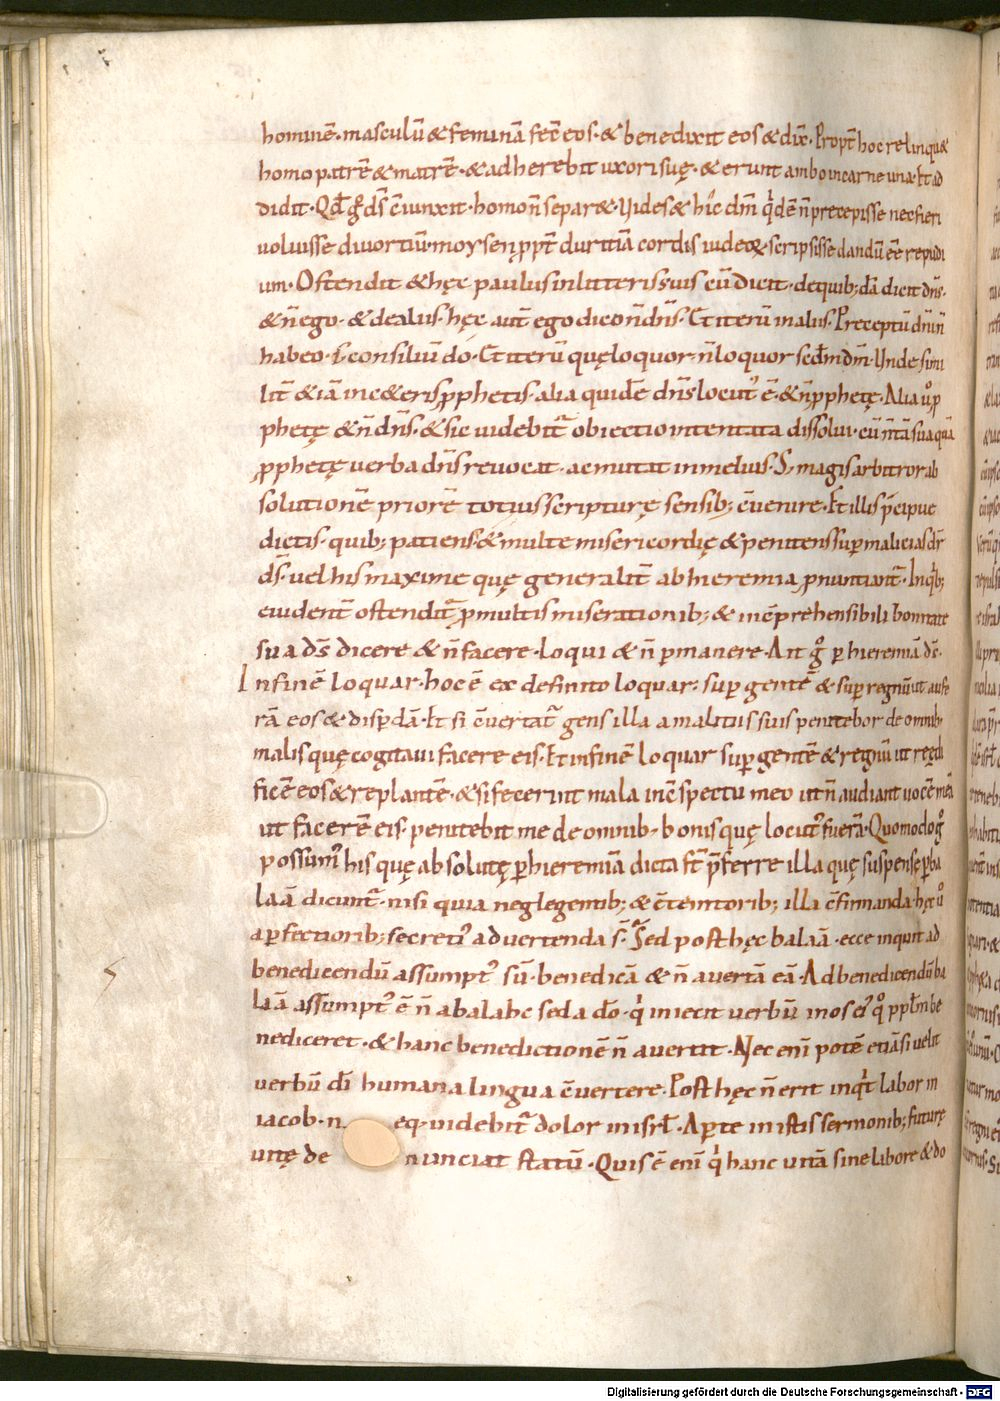 hominē · masculū & feminā fec̄ eos · & benedixit eos & dix̄ · Propt̄ hoc relinqu&
homo patrē & matrē · & adherebit uxori suę · & erunt ambo in carne una · Et ad
didit · Qd̄ g̊ ds̄ c̄iunxit · homo n̄ separ& · Uides & hic dn̄m q'dē n̄ precepisse nec fieri
uoluisse diuortiū · moysen ꝓpt̄ duritiā cordis iudeoꝝ · scripsisse dandū eē repudi
um · Ostendit & hęc paulus in litteris suis cū dicit · de quib; dā dicit dn̄s ·
& n̄ ego · & de aliis · hęc aut̄ ego dico n̄ dn̄s · Et iterū in aliis · Preceptū dn̄i n̄
habeo · s; consiliū do · Et iterū quę loquor · n̄ loquor scd̄m dm̄ · Unde simi
lit̄ & iā in c&eris ꝓphetis · alia quidē dn̄s locut' ē · & n̄ ꝓphetę · Alia u° ꝓ
phetę & n̄ dn̄s · & sic uidebit̄ obiectio intentata dissolui · cū n̄ tā sua quā
ꝓphetę uerba dn̄s reuocat · ac mutat in melius · S; magis arbitror ab
solutionē priorē totius scripturę sensib; c̄uenire · Et illis p̄cipue
dictis · quib; patiens · & multe misericordię & penitens sup malicias dr̄
ds̄ · uel his maxime quę generalit̄ ab hieremia ꝓnuntiant̄ · In q'b;
euident̄ ostendit̄ ꝓ multis miserationib; & inc̄prehensibili bonitate
sua ds̄ dicere & n̄ facere · loqui & n̄ pmanere · Ait g̊ p hieremiā ds̄ ·
In finē loquar · hoc ē ex definito loquar · sup gentē & sup regnū ut aufe
rā eos & dispdā · Et si c̄uertat̄ gens illa a malitiis suis penitebor de omnib;
malis quę cogitaui facere eis · Et in finē loquar sup gentē & regnū ut reędi
ficē eos & replantē · & si fecerint mala in c̄spectu meo ut n̄ audiant uocē meā
ut facerē eis · penitebit me de omnib · bonis quę locut' fuerā · Quomodo g̊
possum' his quę absolutę p hieremiā dicta st̄ p̄ferre illa quę suspense p ba
laā dicunt̄ · nisi quia neglegentib; & c̄temtorib; illa c̄firmanda · hęc u°
a pfectiorib; secreti' aduertenda s̄ · Sed post hęc balaā · ecce inquit ad
benedicendū assumpt' sū · benedicā & n̄ auertā eā · Ad benedicendū ba
laā assumpt' ē n̄ a balahc sed a dō · q' iniecit uerbū in os ei' q° ppl̄m be
nediceret · & hanc benedictionē n̄ auertit · Nec eni potē etiā si uelit
uerbū di humana lingua c̄uertere · Post hęc n̄ erit inq't labor in
iacob · n eq · uidebit̄ dolor in isrl̄ · Apte in istis sermonib; futurę
uitę de nunciat statū · Quis ē eni q' hanc uitā sine labore & do